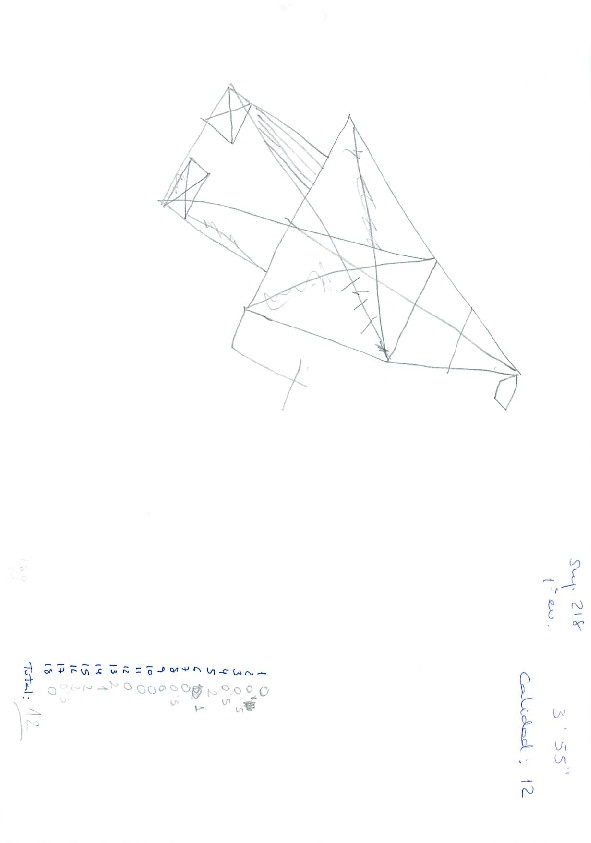 Suj. 218
1ª ev.
3' 55"
Calidad: 12
1 0
2 0
3 0,5
4 0,5
5 2
6 1
7 0
8 0,5
9 0
10 0
11 0
12 0
13 2
14 1
15 2
16 2
17 0,5
18 0
Total: 12